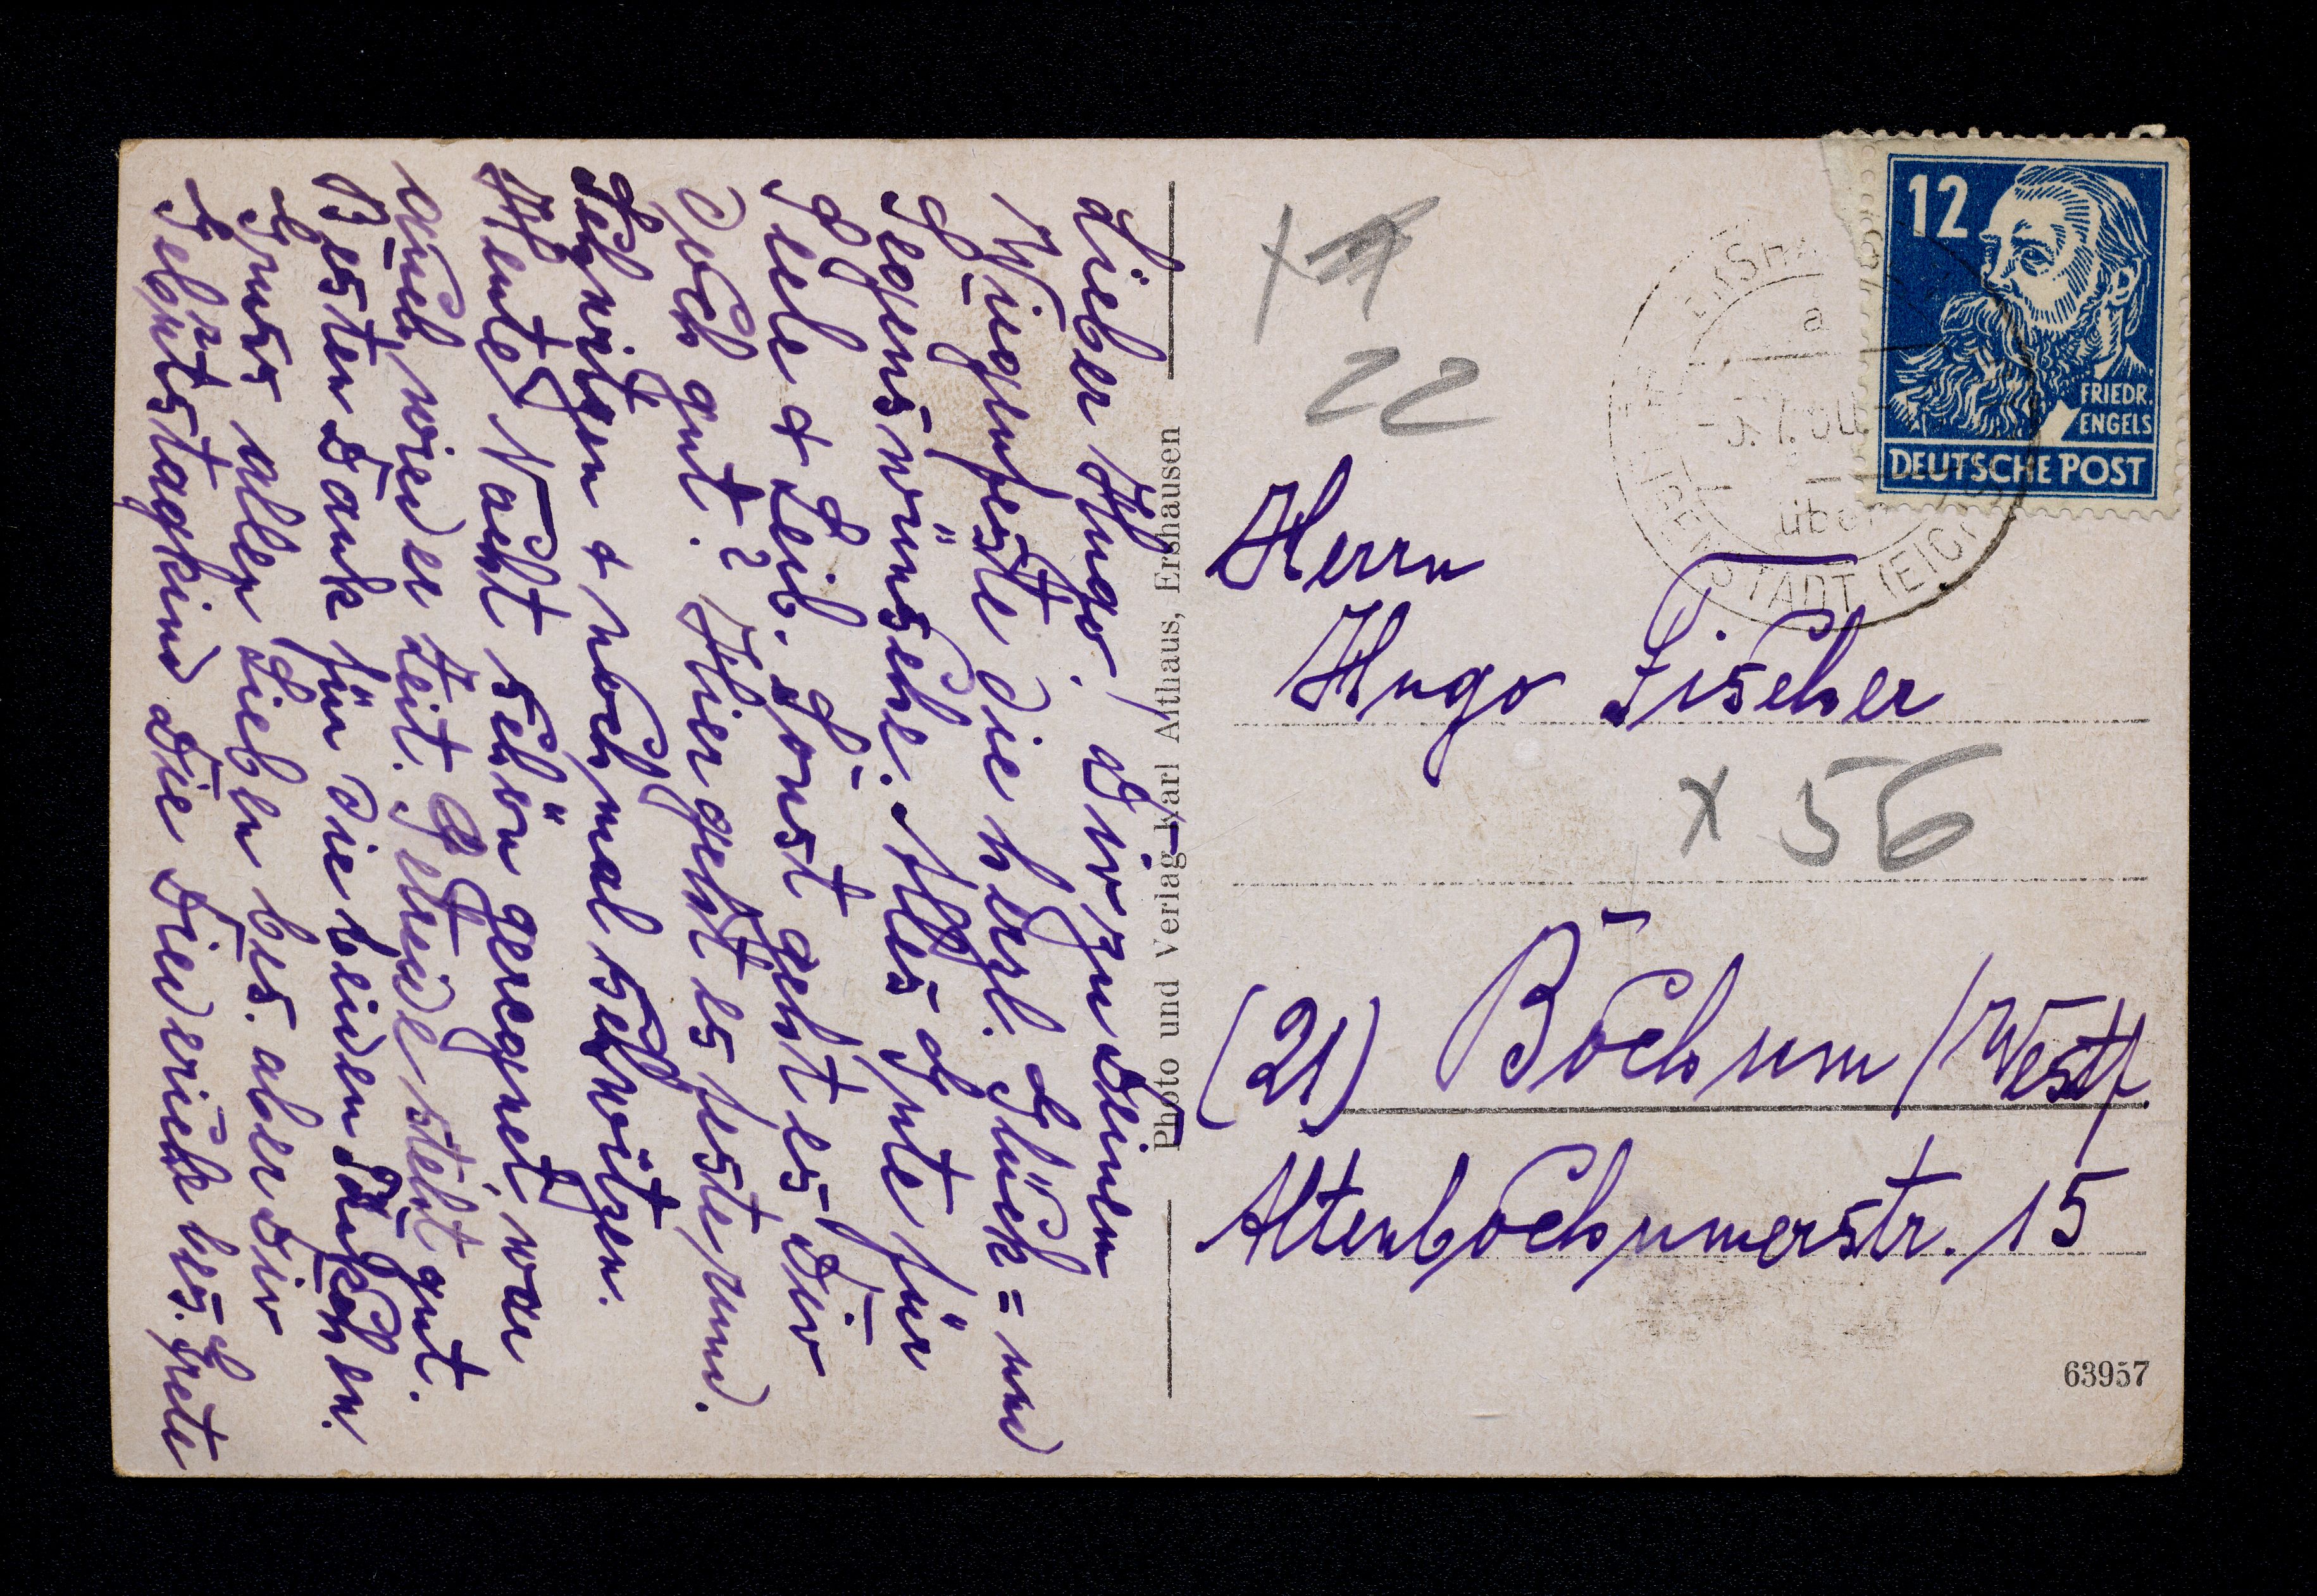 Lieber Hugo! Dir zu Deinem
Wiegenfeste die herzl. Glück= und
Segenswünsche. Alles Gute für
Seele & Leib. Sonst geht es Dir
doch gut.? Hier geht es feste rund.
Schwitzen & nochmal schwitzen.
Heute Nacht schön geregnet, war
auch wieder Zeit. Getreide steht gut.
Besten Dank für die beiden
Gruss allen Lieben bes. aber Dir
Geburtstagkind Die Diederich bes. Grete
Photo und Verlag Karl Althaus, Ershausen
12
FRIEDR.
ENGELS
DEUTSCHE POST
a
über
STADT (EICH
22
Herrn
Hugo Fischer
x 56
(21) Bochum / Westf.
Altenbochumerstr. 15
63957